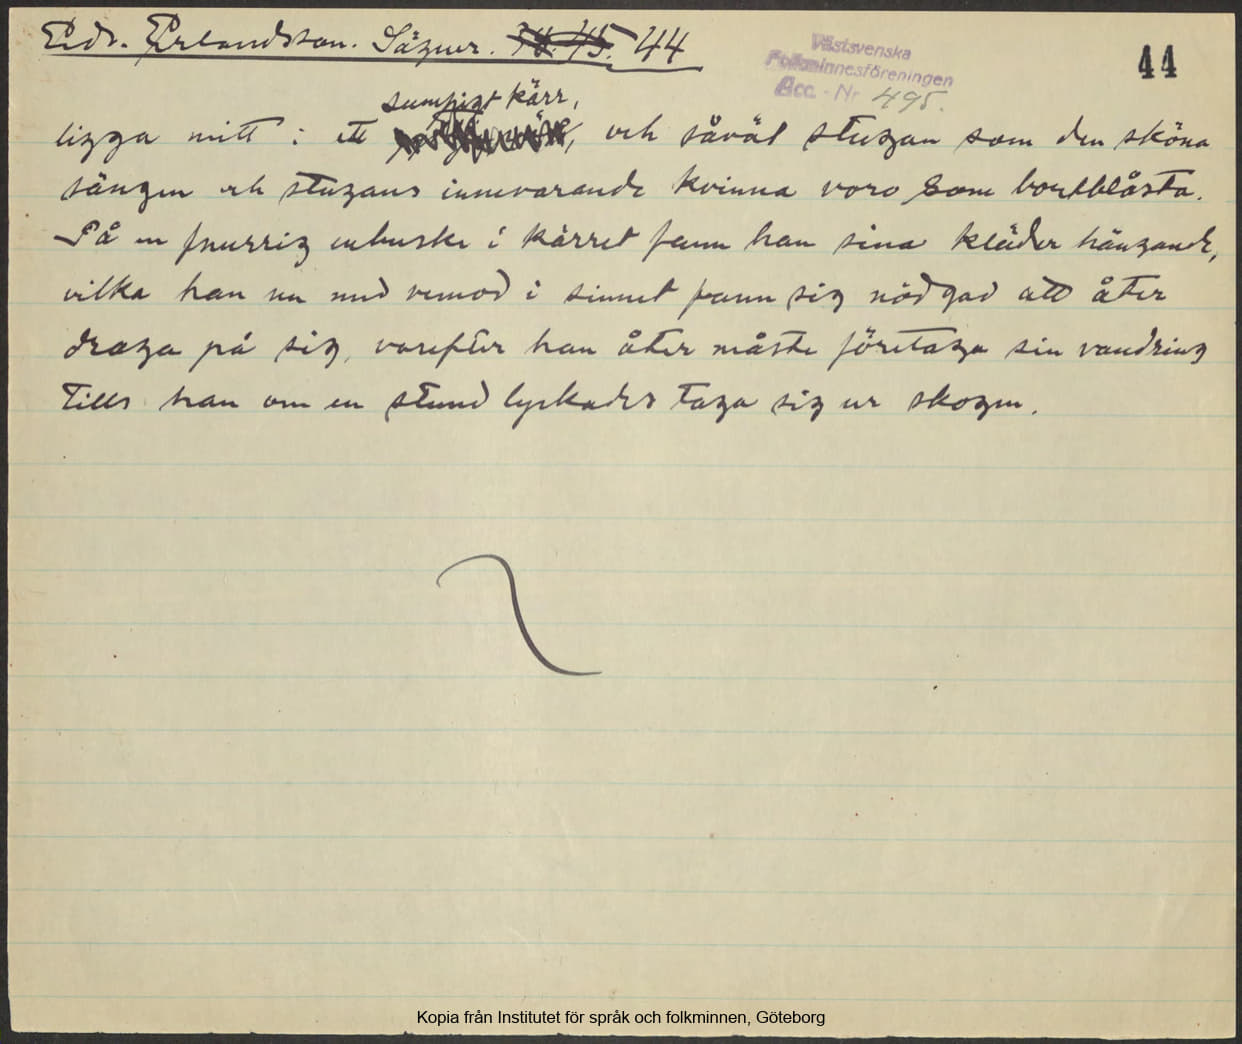 Edv. Erlandsson. Sägner. 44
44
Västsvenska
Folkminnesföreningen
Acc. - Nr 495.
sumpigt kärr,
ligga mitt i ett och såväl stugan som den sköna
sängen och stugans innevarande kvinna voro som bortblåsta.
På en snurrig enbuske i kärret fann han sina kläder hängande,
vilka han nu med vemod i sinnet fann sig nödgad att åter
draga på sig, varefter han åter måste företaga sin vandring
tills han om en stund lyckades taga sig ur skogen.
Kopia från Institutet för språk och folkminnen, Göteborg